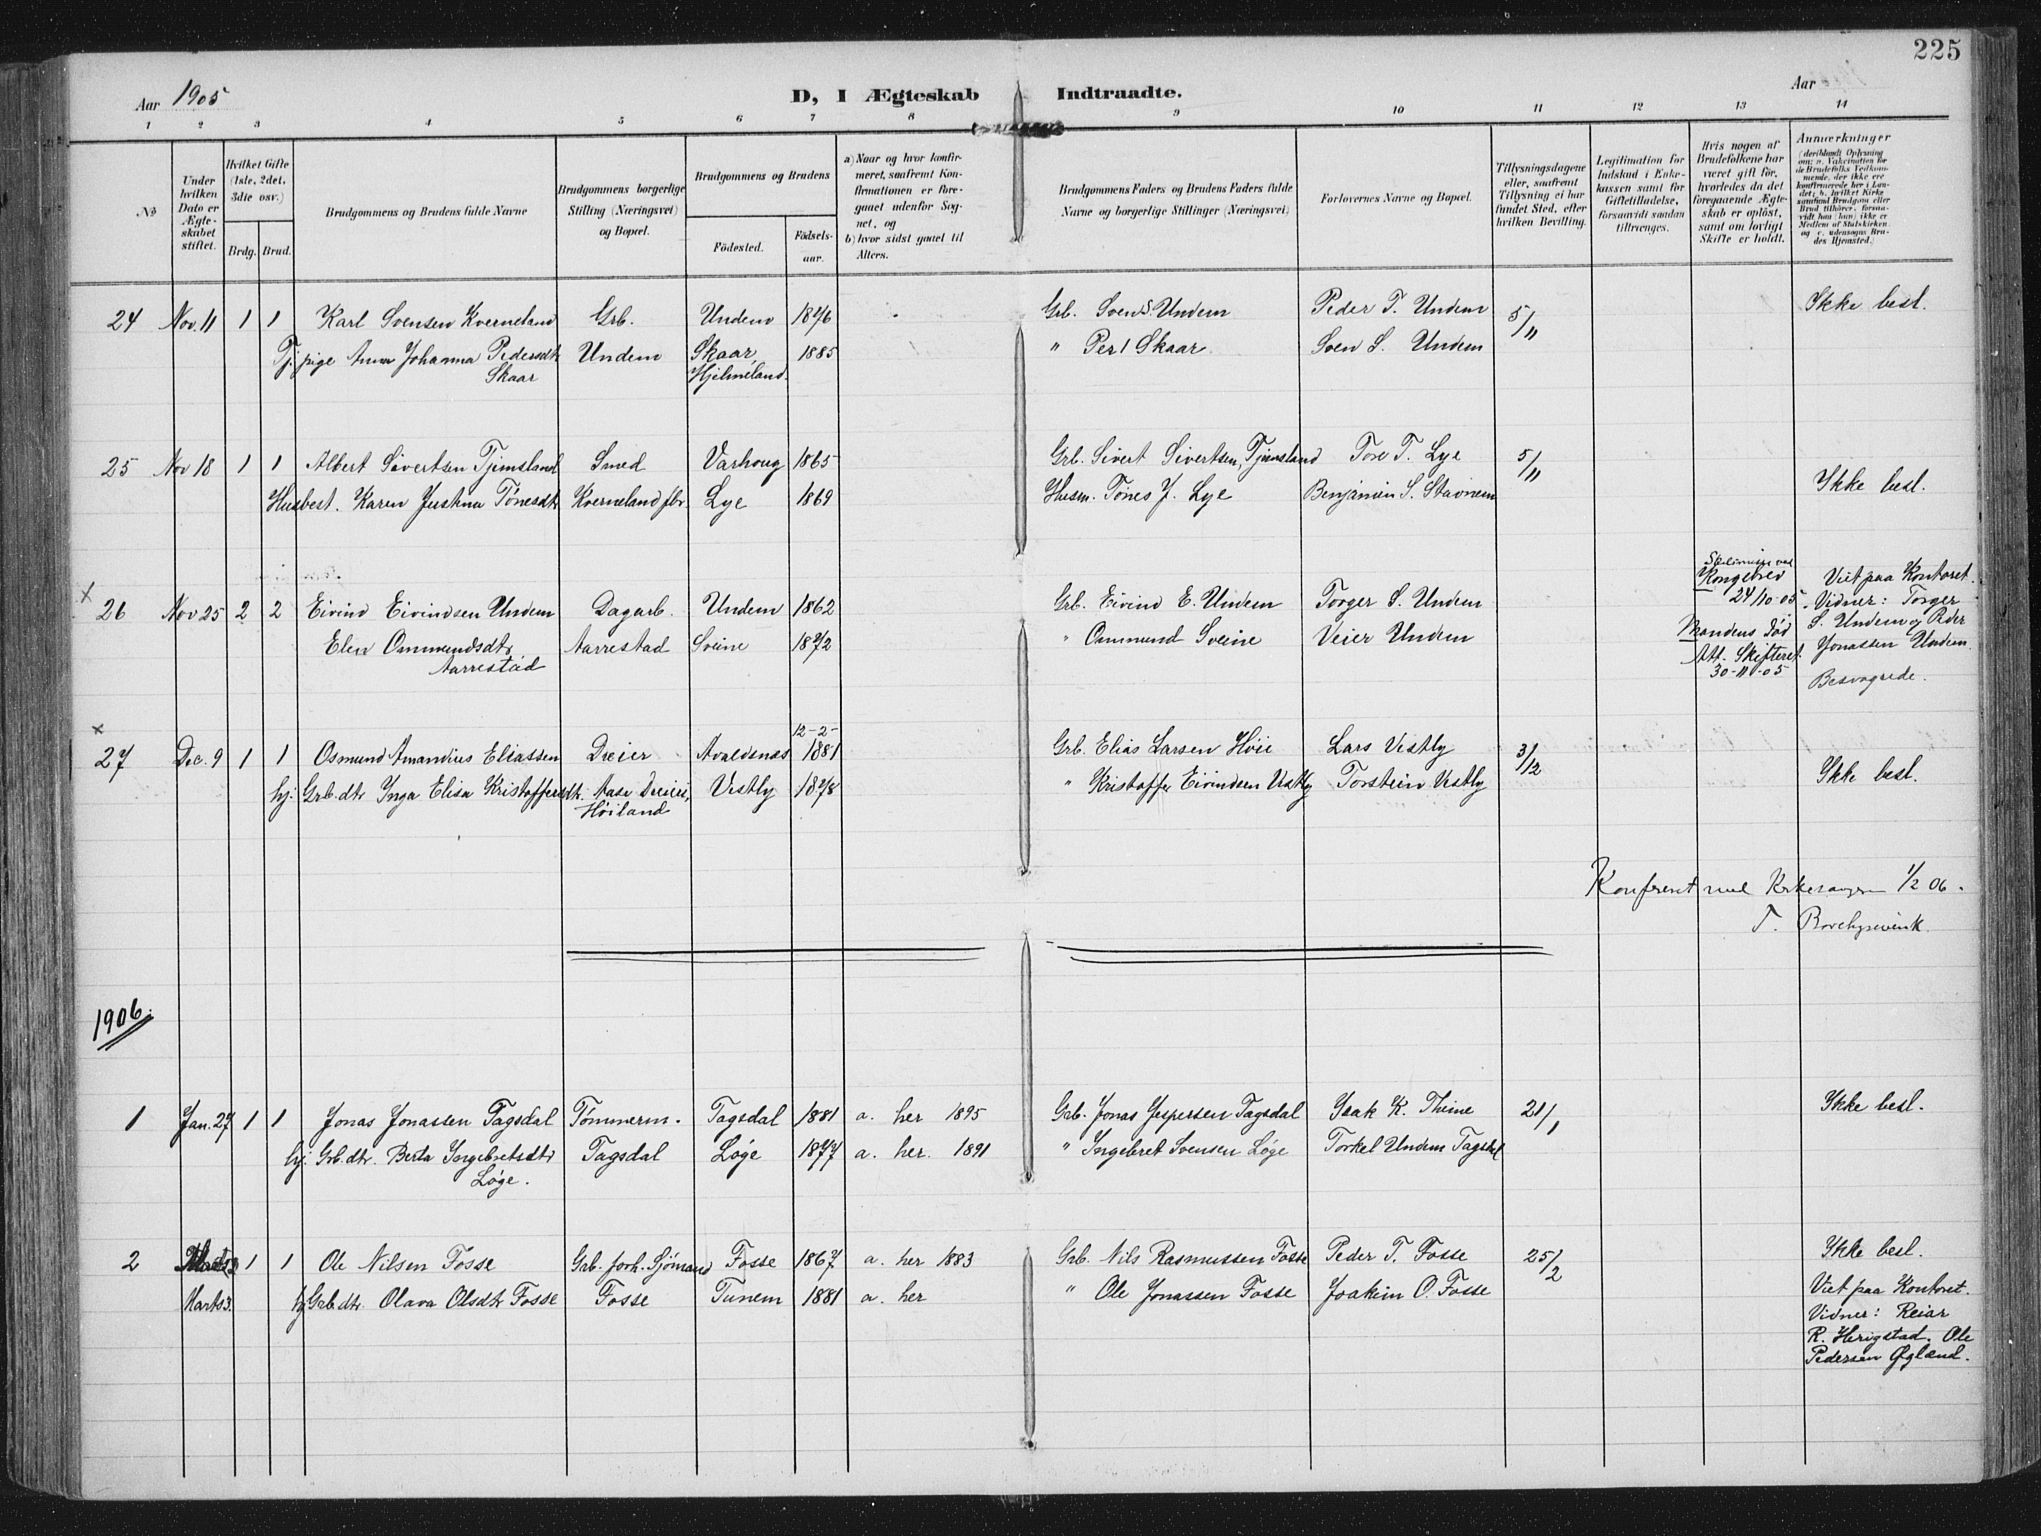 225
Aar 1905
D, I Ægteskab Indtraadte.
Aar
1 2 3 4 5 6 7 8 9 10 11 12 13 14
No
Under hvilken Dato er Ægteskabet stiftet.
Hvilket Gifte (1ste, 2det, 3die osv.)
Brdg. Brud.
Brudgommens og Brudens fulde Navne
Brudgommens borgerlige Stilling (Næringsvei) og Bopæl.
Brudgommens og Brudens
Fødested.
Fødselsaar.
a) Naar og hvor konfirmeret, saafremt Konfirmationen er foregaaet udenfor Sognet, og
b) hvor sidst gaaet til Alters.
Brudgommens Faders og Brudens Faders fulde Navne og borgerlige Stillinger (Næringsvei)
Forlovernes Navne og Bopæl.
Tillysningsdagene eller, saafremt Tillysning ei har fundet Sted, efter hvilken Bevilling.
Legitimation for Indskud i Enkekassen samt for Giftetilladelse, forsaavidt saadan tiltrænges.
Hvis nogen af Brudefolkene har været gift før, hvorledes da det foregaaende Ægteskab er opløst, samt om lovligt Skifte er holdt.
Anmerkninger
(deriblandt Oplysning om: a. Vakcination for de Brudefolks Vedkommende, der ikke ere konfirmerede her i Landet; b. hvilket Kirkesamfund Brudgom eller Brud tilhører, forsaavidt han (hun) ikke er Medlem af Statskirken, og c. udensogns Brudes Hjemsted.)
24 Nov. 11 1 1 Karl Svensen Kverneland Grb. Undem 1876 Grb. Sven S. Undem Peder T. Undem 5/11 Ikke besl.
Tj. pige Anna Johanna Pedersdtr Undem Skaar, 1885 " Per I Skaar Sven S. Undem
Skaar Hjelmeland.
25 Nov 18 1 1 Albert Sivertsen Tjemsland Smed Varhoug 1865 Grb. Sivert Sivertsen, Tjemsland Tore T. Lye 5/11
Husbest. Karen Justina Tønesdtr Kverneland fbr. Lye 1869 Husm. Tønes J. Lye Benjamin S. Stavnem Ikke besl.
x
26 Nov 25 2 2 Eivind Eivindsen Undem Dagarb. Undem 1862 Grb. Eivind E. Undem Torger S. Undem
Elen Ommundsdtr Aarrestad Sveine 1872 " Ommund Sveine Veier Undem
Aarrestad
Kongebrev
24/10 05
Mandens død
Att. Skifteret.
30-11-05
Viet paa Kontoret.
Vidner: Torger
S. Undem og Peder
Jonassen Undem.
Besvogrede.
x 12-2-
27 Dec. 9 1 1 Osmund Amandius Eliassen Dreier Avaldsnes 1881 Grb. Elias Larsen Høie Lars Vestly 3/12
hj. Grb. dtr Inga Elisa Kristoffersdtr. Aase Dreieri, Vestly 1878 " Kristoffer Eivindsen Vestly Torstein Vestly Ikke besl.
Høiland
Konfereret med Kirkesangeren 1/2 06.
T.
1906.
1 Jan. 27 1 1 Jonas Jonassen Tagsdal Tømmerm. Tagsdal 1881 a. her 1895 Grb. Jonas Jespersen Tagsdal Isak K. Thime 21/1 Ikke besl.
hj. Grb. dtr. Berta Ingebretsdtr Tagsdal Løge 1877 a. her. 1891 " Ingebret Svensen Løge Torkel Undem Tagsdal
Løge.
2 1 1 Ole Nilsen Fosse Grb. forh. Sjömand Fosse 1867 a. her 1883 Grb. Nils Rasmussen Fosse Peder T. Fosse 25/2 Ikke besl.
Marts 3. hj Grb. dtr. Olava Olsdtr Fosse Fosse Tunem 1881 a. her " Ole Jonassen Fosse Joakim O. Fosse
Viet paa Kontoret.
Vidner: Reiar
R. Herigstad. Ole
Pedersen Øgland.